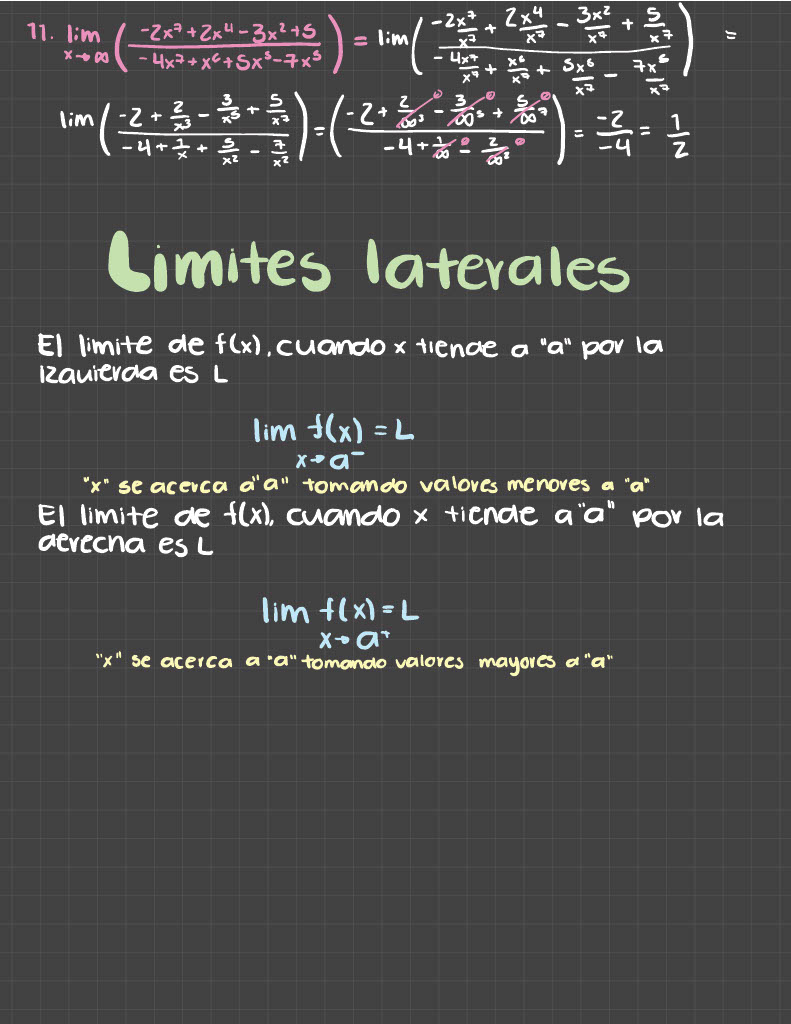 11. lim x→∞ (-2x⁷+2x⁴-3x²+5 / -4x⁷+x⁶+5x⁵-7x⁵) = lim (-2x⁷/x⁷ + 2x⁴/x⁷ - 3x²/x⁷ + 5/x⁷ / -4x⁷/x⁷ + x⁶/x⁷ + 5x⁶/x⁷ - 7x⁵/x⁷) =
lim (-2 + 2/x³ - 3/x⁵ + 5/x⁷ / -4 + 1/x + 5/x² - 7/x²) = (-2 + 2/∞³ - 3/∞⁵ + 5/∞⁷ / -4 + 1/∞ - 2/∞²) = -2/-4 = 1/2
Limites laterales
El limite de f(x), cuando x tiende a "a" por la
izquierda es L
lim f(x) = L
x→a⁻
"x" se acerca a "a" tomando valores menores a "a"
El limite de f(x), cuando x tiende a "a" por la
derecha es L
lim f(x) = L
x→a⁺
"x" se acerca a "a" tomando valores mayores a "a"